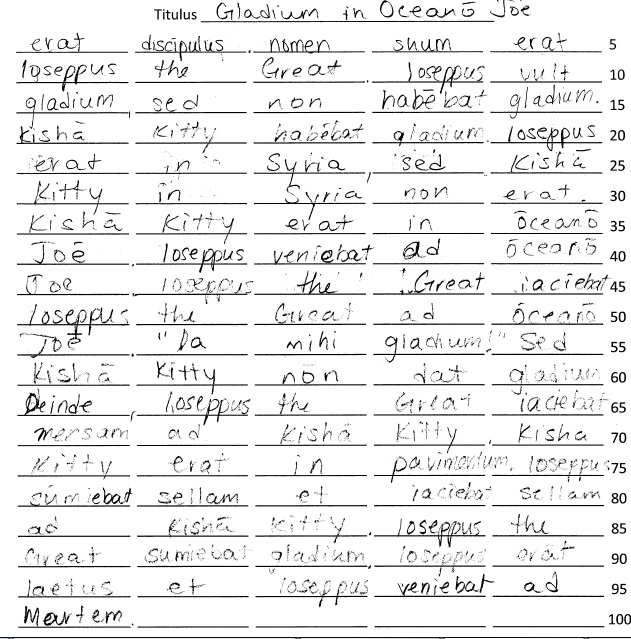 Titulus Gladium in Oceanō Joe
erat discipulus. nomen suum erat 5
Ioseppus the Great. Ioseppus vult 10
gladium, sed non habēbat gladium. 15
Kishā Kitty habēbat gladium. Ioseppus 20
erat in Syria, sed Kishā 25
Kitty in Syria non erat. 30
Kishā Kitty erat in ōceanō 35
Joē. Ioseppus veniebat ad ōceanō 40
Joe. Ioseppus the Great iaciebat 45
Ioseppus the Great ad ōceanō 50
Joē. "Da mihi gladium!" Sed 55
Kishā Kitty nōn dat gladium 60
Deinde, Ioseppus the Great iaciebat 65
mersam ad Kishā Kitty. Kisha 70
Kitty erat in pavimentum. Ioseppus 75
sūmiebat sellam et iaciebat sellam 80
ad Kishā Kitty. Ioseppus the 85
Great sumiebat gladium. Ioseppus erat 90
laetus et Ioseppus veniebat ad 95
Martem. 100